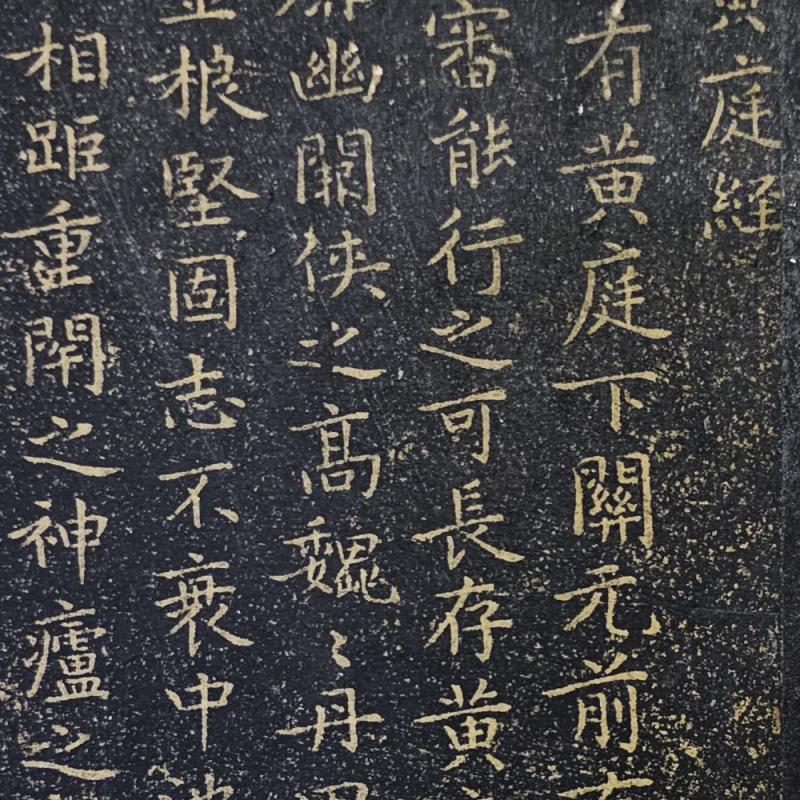 黄庭經
有黄庭下關元前
審能行之可長存黄
幽闕俠之高魏〻丹
根堅固志不衰中
相距重閇之神廬之